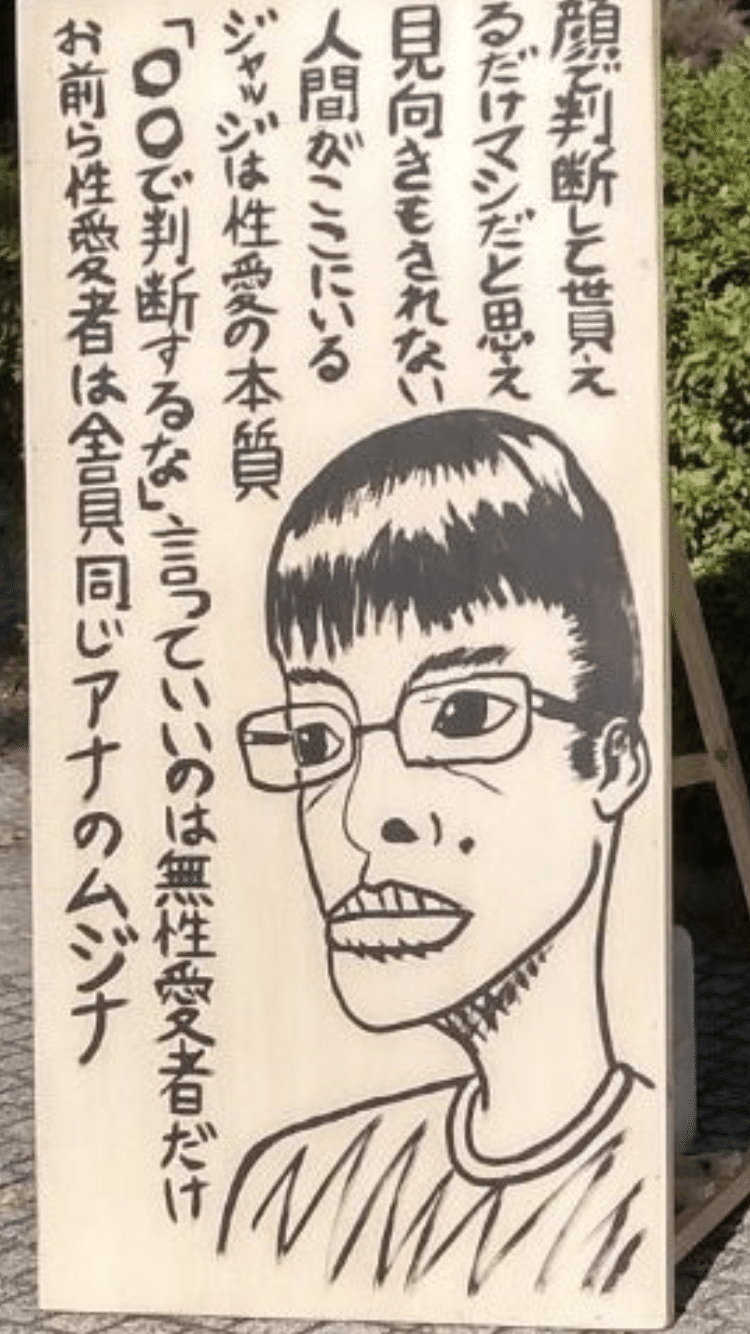 顔で判断して貰え
るだけマシだと思え
見向きもされない
人間がここにいる
ジャッジは性愛の本質
「〇〇で判断するな」言っていいのは無性愛者だけ
お前ら性愛者は全員同じアナのムジナ